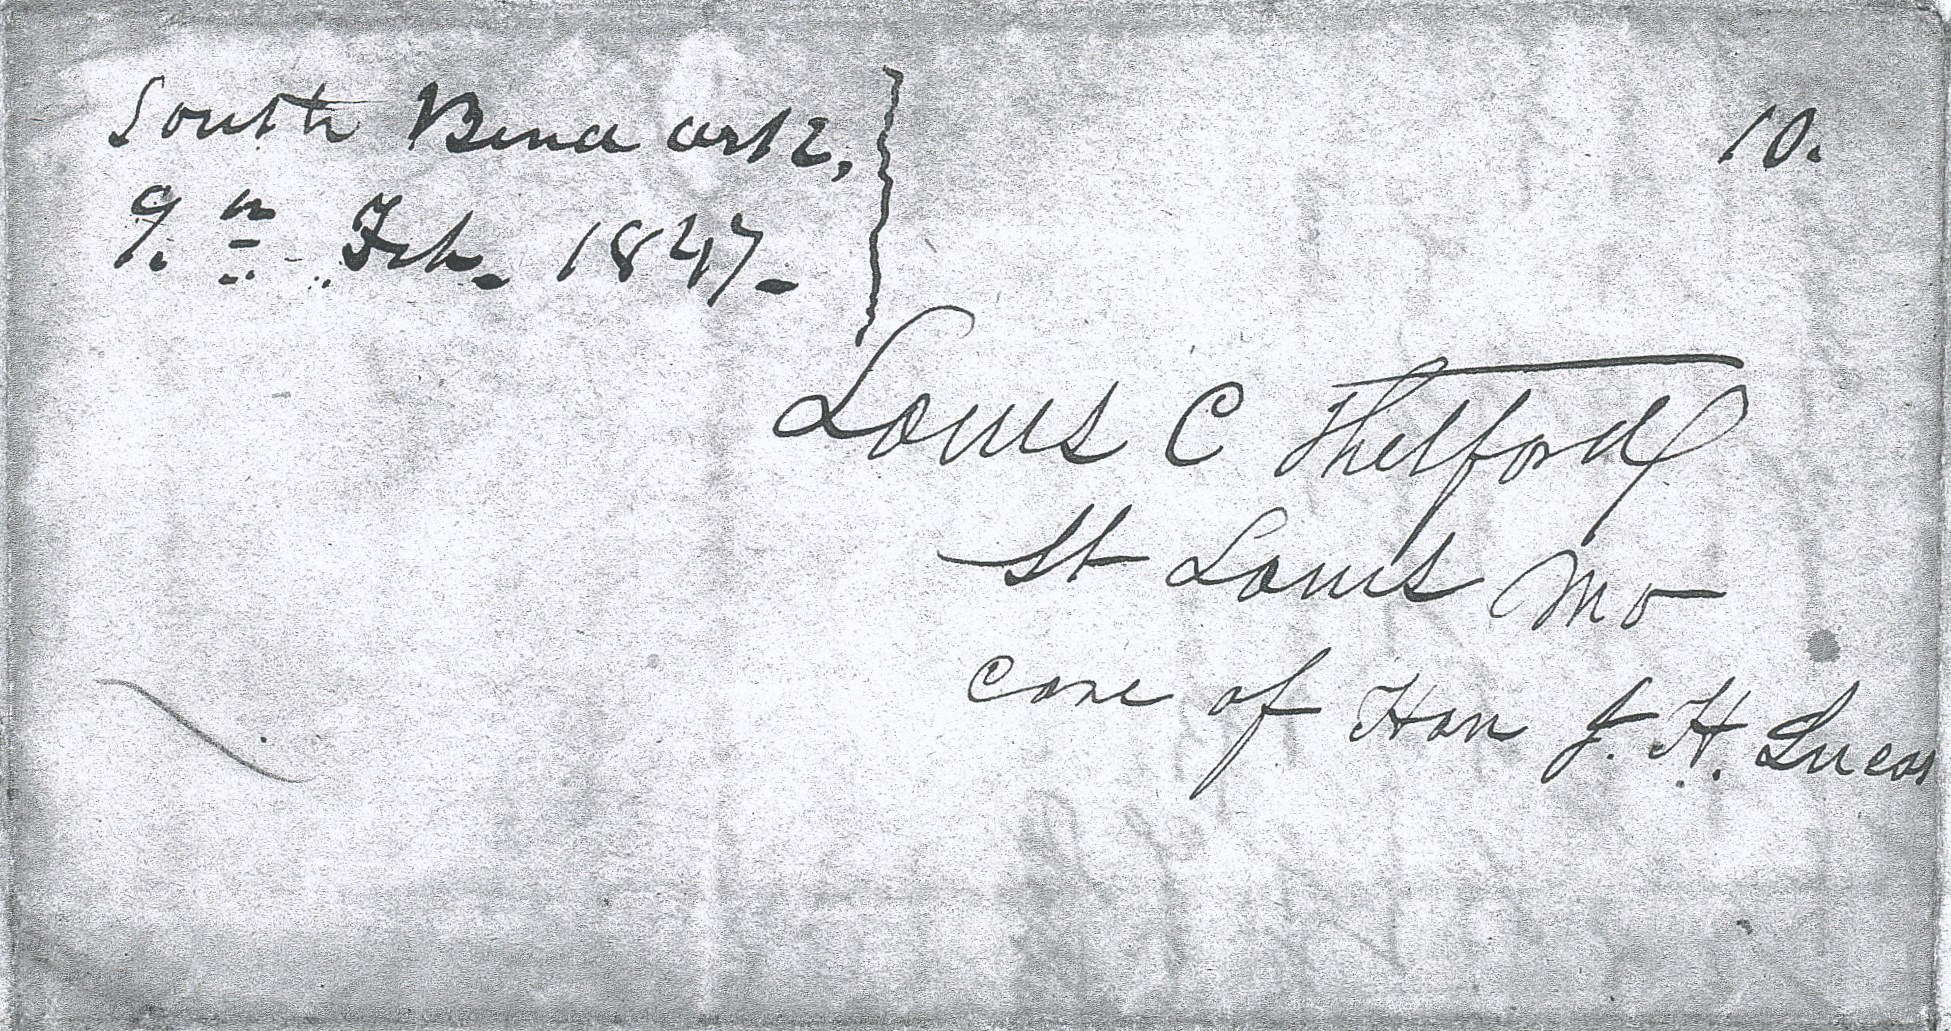 South Bend arks,
9th Feb. 1847.
10.
Louis C Thetford
St Louis Mo
care of Hon J. H. Lucas